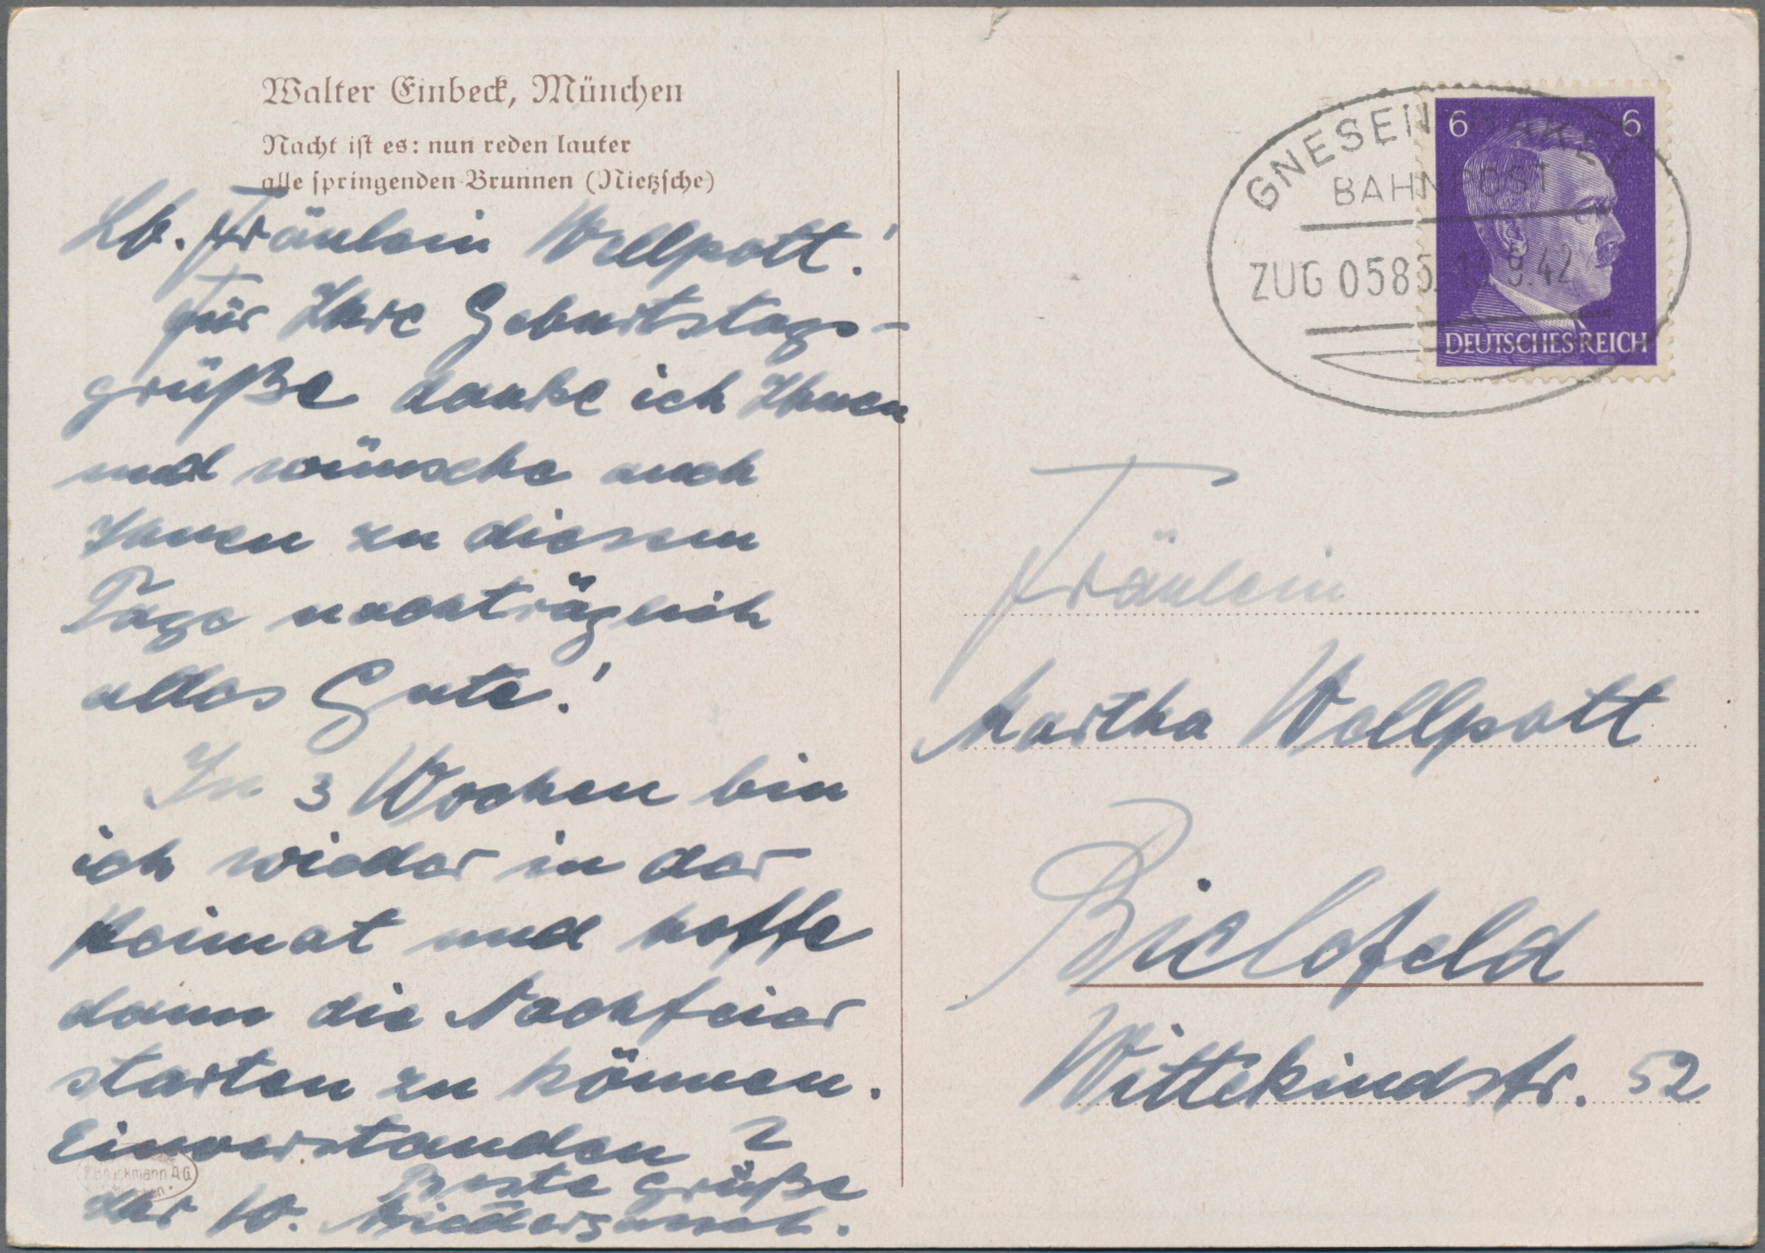 Walter Einbeck, München
Nacht ist es: nun reden lauter
alle springenden Brunnen (Nietzsche)
Lb. Fräulein Wellpott!
Für Ihre Geburtstags-
grüße danke ich Ihnen
und wünsche auch
Ihnen zu diesem
Tage nachträglich
alles Gute!
In 3 Wochen bin
ich wieder in der
Heimat und hoffe
dann die Nachfeier
starten zu können.
Einverstanden?
Beste Grüße
Ihr W.
Bruckmann AG
GNESEN
BAHNPOST
ZUG 0585 13.9.42
6 6
DEUTSCHES REICH
Fräulein
Martha Wellpott
Bielefeld
Wittekindstr. 52